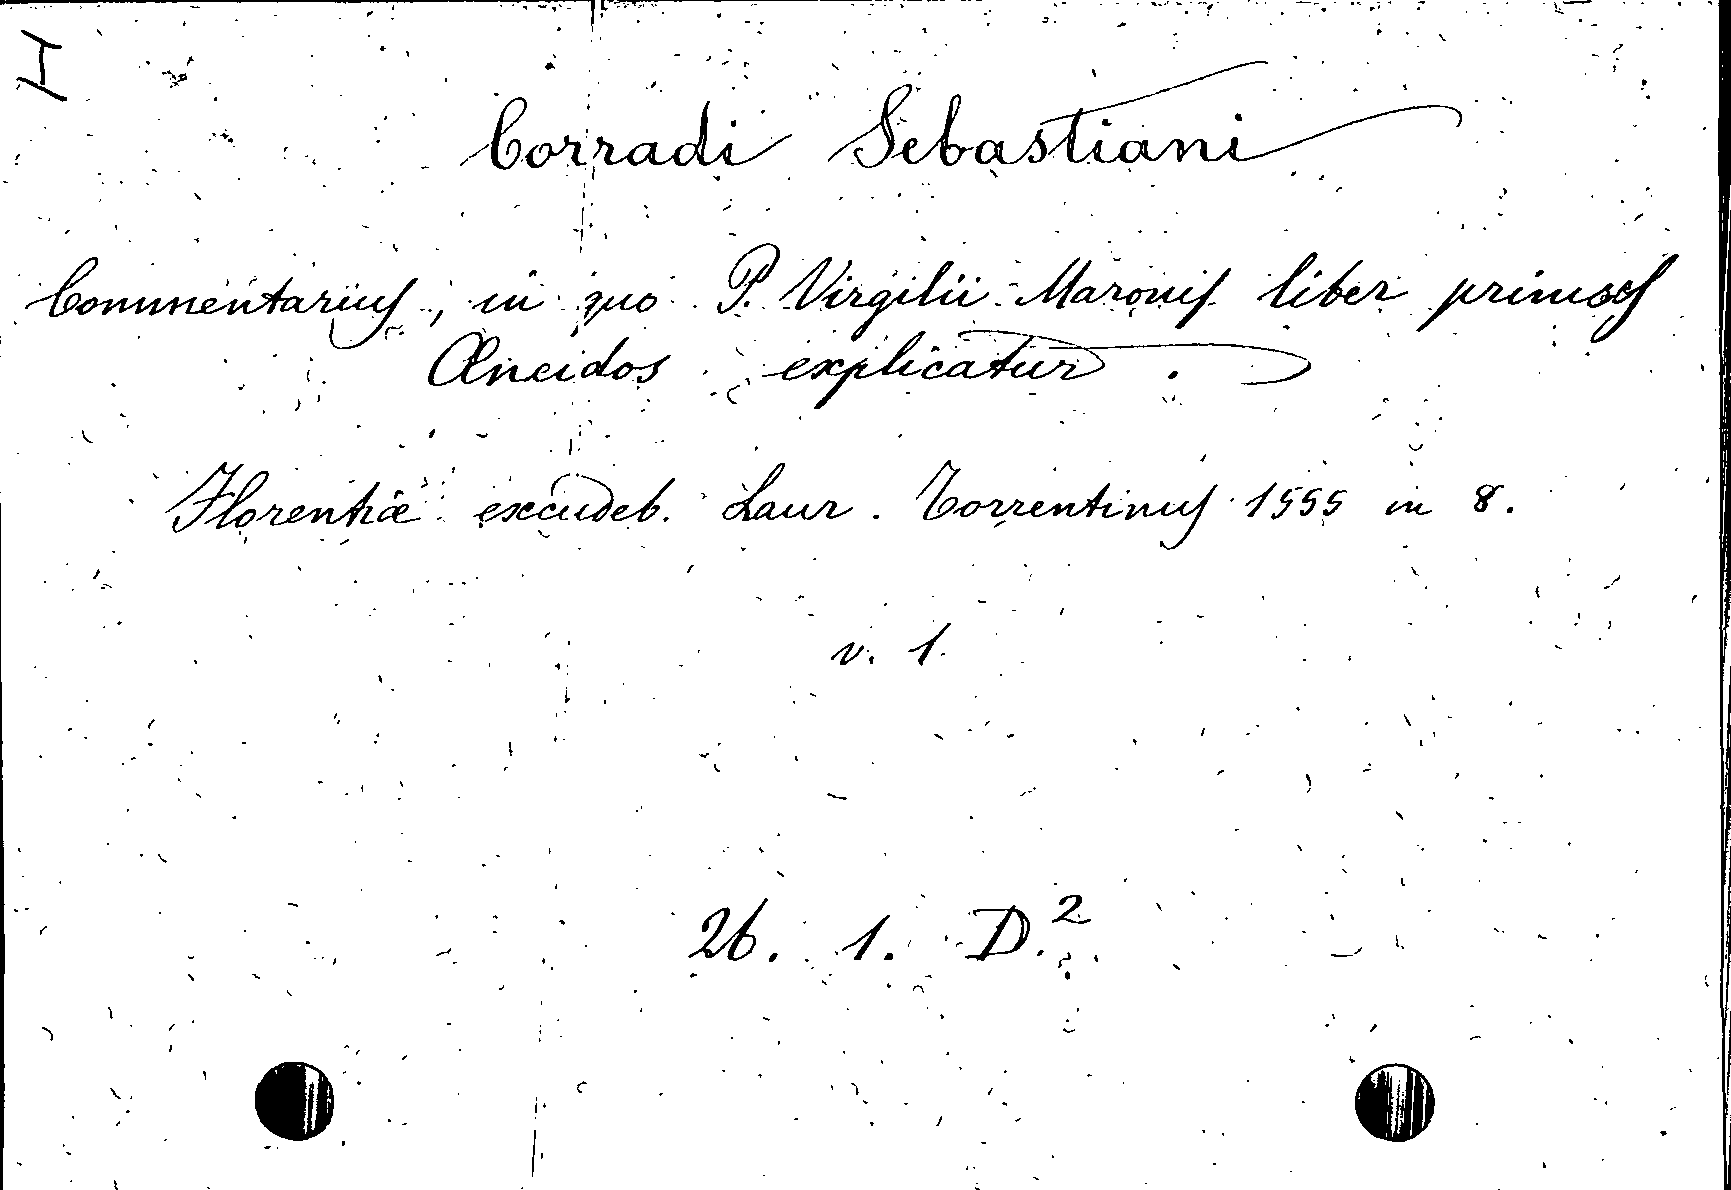 I
Corradi Sebastiani
Commentarius, in quo P. Virgilii Maronis liber primus
Æneidos explicatur.
Florentiæ excudeb. Laur. Torrentinus 1555 in 8.
v. 1.
26. 1. D.²